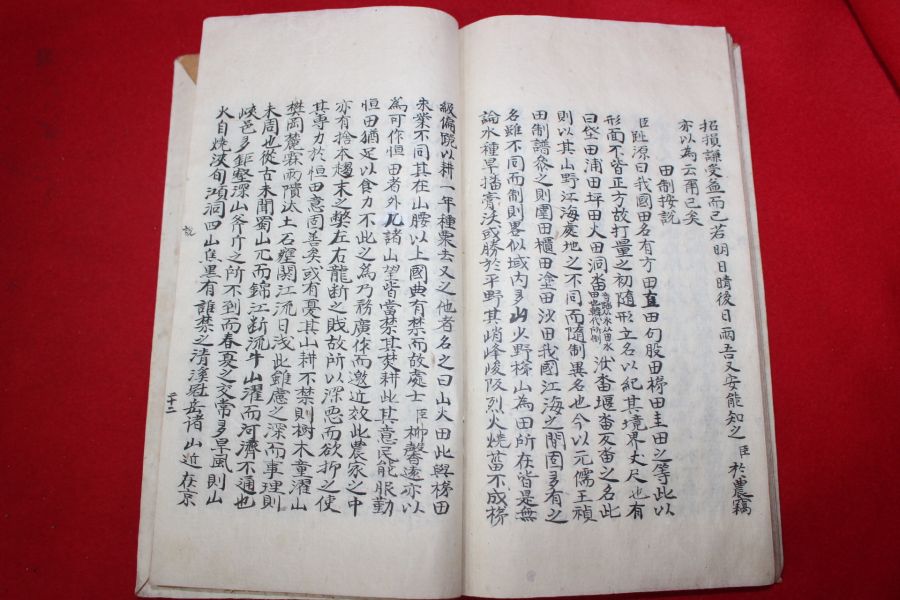 招損謙受益而已若明日晴後日雨吾又安能知之 臣 於農竊
亦以為云爾已矣
田制按說
臣趾源曰我國田名有方田直田句股田梯田圭田之等此以
形面不皆正方故打量之初隨形立名以紀其境界丈尺也有
曰垈田浦田坪田火田洞畓 洑畓堰畓灭畓之名此
則以其山野江海處地之不同而隨制異名也今以元儒王禎
田制參之則圍田櫃田塗田沙田我國江海之間固多有之
名雖不同而制則畧似域內多山火野梯山為田所在皆是無
論水種旱播膏沃或勝於平野其峭峰峻阪烈火燒菑不成梯
級偏跪以耕一年種粟去又之他者名之曰山火田此與梯田
来業不同其在山腰以上國典有禁而故處士臣柳馨遠亦以
為可作恒田者外凡諸山望皆當禁其焚耕此其意民能服勤
恒田猶足以食力不此之為乃務廣作而邀近效此農家之中
亦有捨本趨末之獘左右龍断之賎故所以深思而欲抑之使
其專力於恒田意固善矣或有憂其山耕不禁則樹木童濯山
樊岡麓霖雨隤汰土石壅閼江流日浅此雖慮之深而事理則
未周也從古未聞蜀山兀而錦江断流牛山濯而河濟不通也
峽邑多鉅壑深山斧斤之所不到而春夏之交常多旱風則山
火自燒浹旬澒洞四山焦黒有誰禁之清溪冠岳諸山近在京
二十二
說